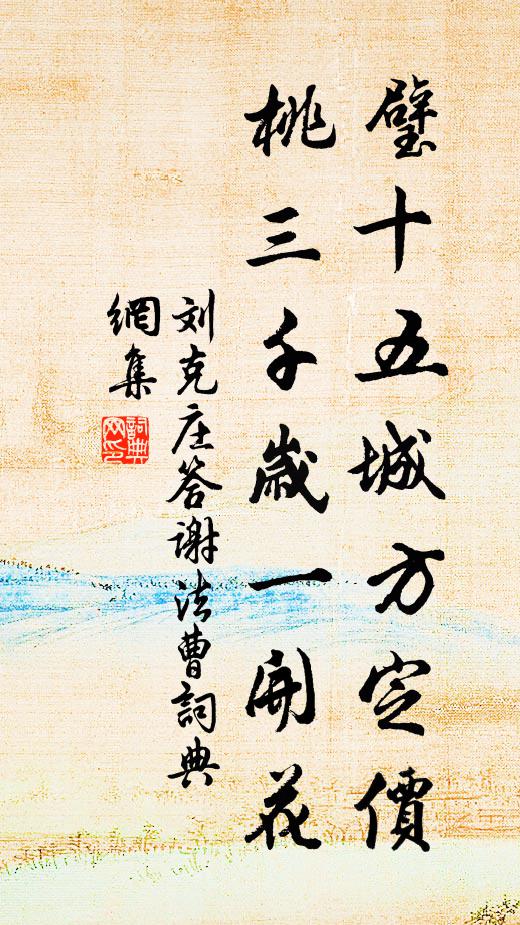 璧十五城方定價
桃三千歲一開花
刘克庄答谢法曹詞典
網集
詞典
网印